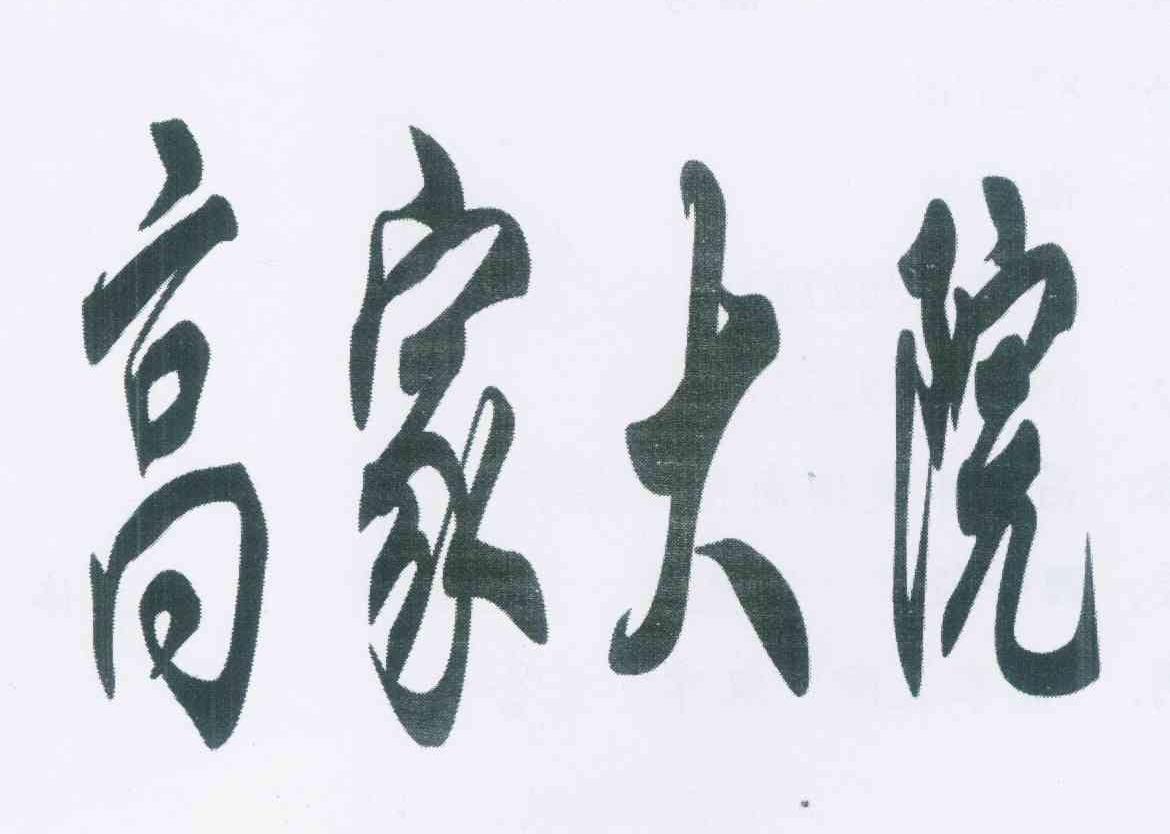 高家大院